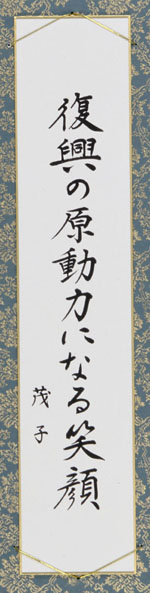 復興の原動力になる笑顔
茂子